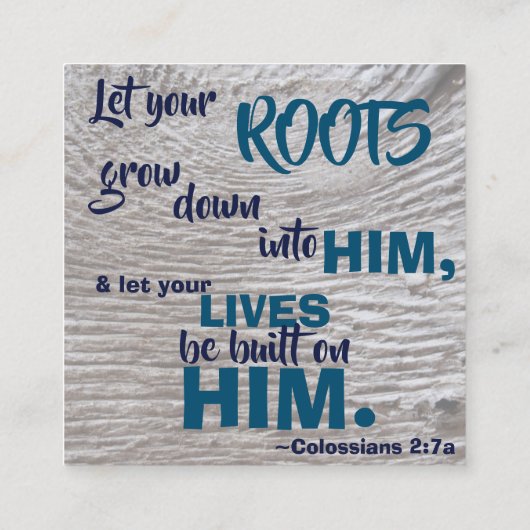 Let your ROOTS
grow
down
into HIM,
& let your
LIVES
be built on
HIM.
~Colossians 2:7a